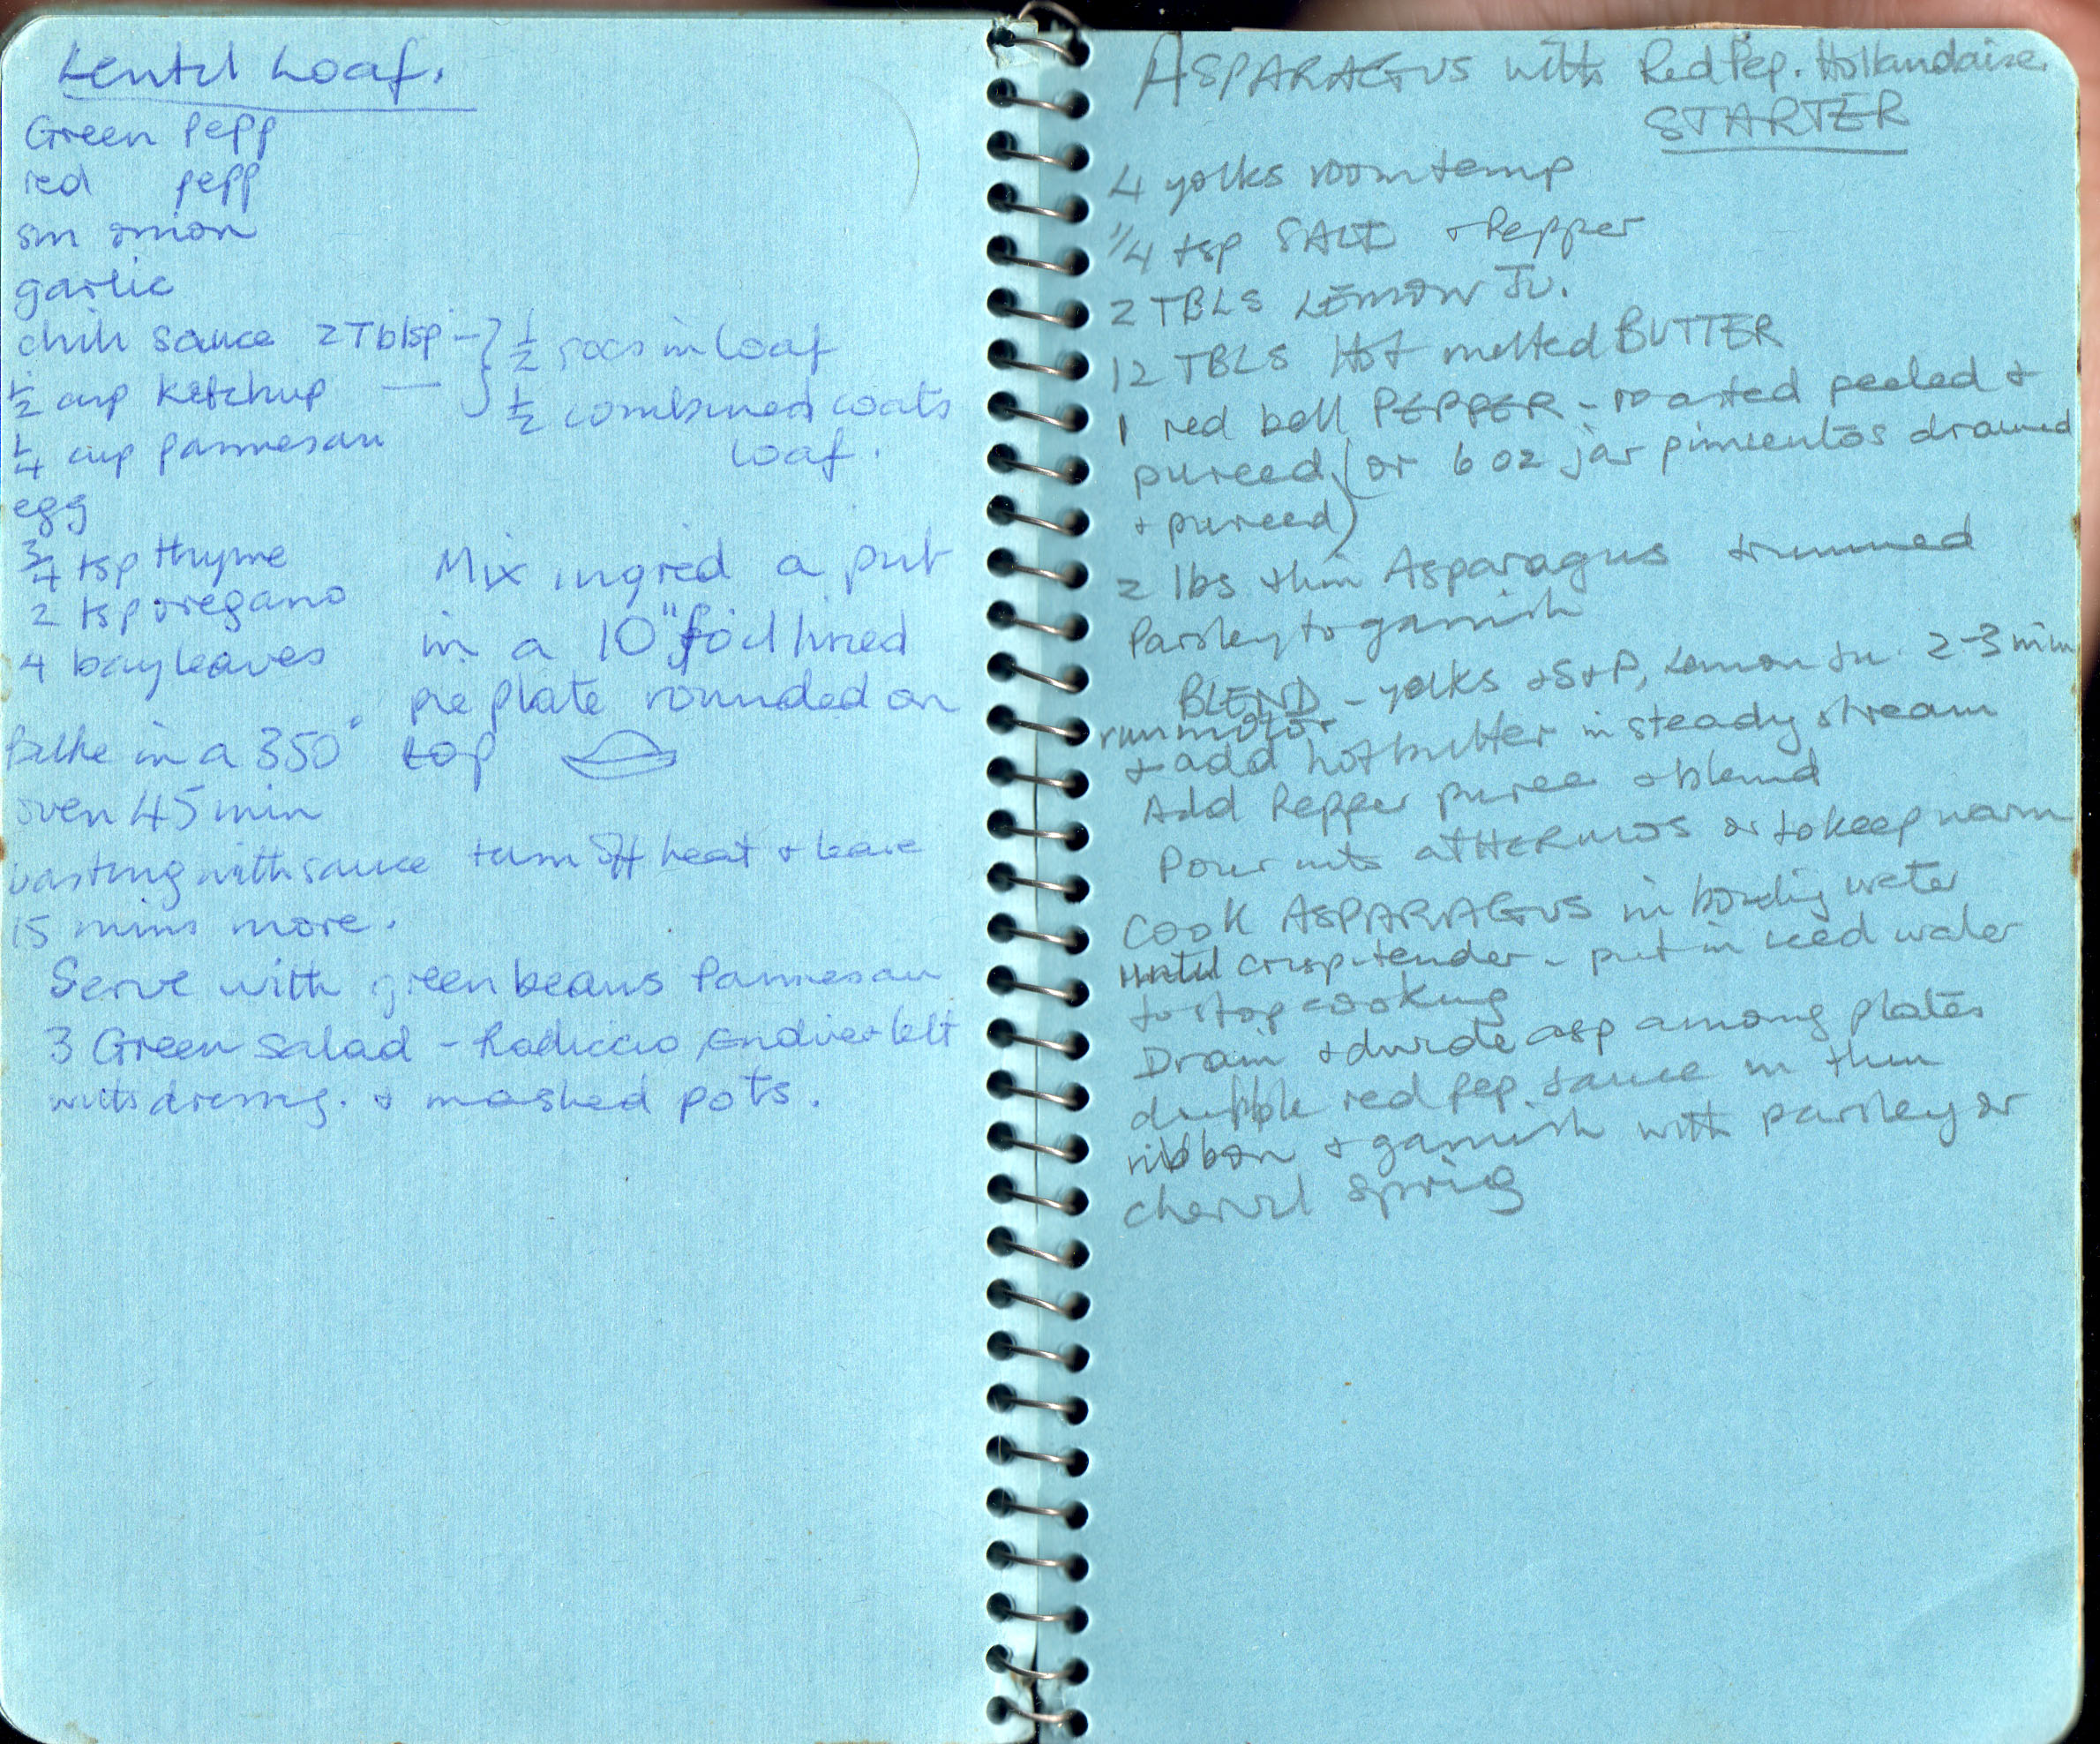 Lentil Loaf.
Green Pepp
red pepp
sm onion
garlic
chili sauce 2 Tblsp - } 1/2 goes in loaf
1/2 cup Ketchup — 1/2 combined coats
1/4 cup parmesan loaf.
egg
3/4 tsp thyme
2 tsp oregano
4 bay leaves
Mix ingred a put
in a 10" foil lined
pie plate rounded on
top
Bake in a 350°
oven 45 min
basting with sauce turn off heat + leave
15 mins more.
Serve with green beans Parmesan
3 Green salad - Radiccio, Endive + lett
with dressing. + mashed pots.
ASPARAGUS with Red Pep. Hollandaise.
STARTER
4 yolks room temp
1/4 tsp SALT + Pepper
2 TBLS LEMON JU.
12 TBLS Hot melted BUTTER
1 red bell PEPPER - roasted peeled +
pureed (or 6 oz jar pimentos drained
+ pureed)
2 lbs thin Asparagus trimmed
Parsley to garnish
BLEND - yolks + S + P, Lemon Ju. 2-3 min
run motor
+ add hot butter in steady stream
Add Pepper puree + blend
Pour into a THERMOS or to keep warm
COOK ASPARAGUS in boiling water
until crisp-tender - put in iced water
to stop cooking
Drain + divide asp among plates
dribble red pep. sauce in thin
ribbon + garnish with parsley or
chervil sprig